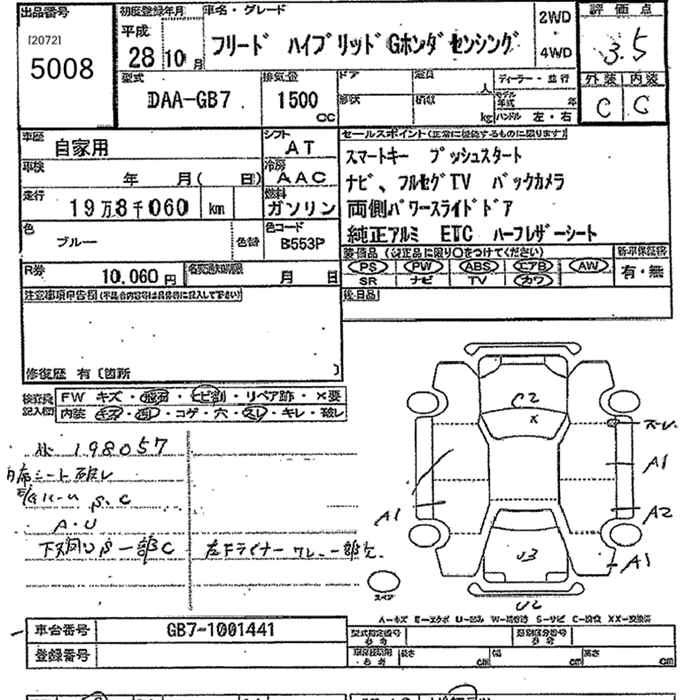 出品番号
[2072]
5008
初度登録年月
平成
28 10 月
車名・グレード
フリード ハイブリッドGホンダセンシング
2WD
・
4WD
評価点
3.5
型式
DAA-GB7
排気量
1500
CC
ドア
形状
定員
人
積載
kg
ディーラー・並行
モデル年式 年
ハンドル 左・右
外装 内装
C C
車歴
自家用
シフト
AT
車検
年 月( 日)
冷房
AAC
走行
19万8千060 km
燃料
ガソリン
色
ブルー
色替
色コード
B553P
セールスポイント(正常に機能するものに限ります)
スマートキー プッシュスタート
ナビ、フルセグTV バックカメラ
両側パワースライドドア
純正アルミ ETC ハーフレザーシート
装備品 (純正品に限り○をつけてください)
PS PW ABS エアB AW
SR ナビ TV カワ
新車保証書
有・無
後日品
R券
10,060 円
名変通知期限
月 日
注意事項申告欄
修復歴 有 (箇所 )
検査員記入欄
FW キズ・飛石・ヒビ割・リペア跡・X要
内装 キズ・汚レ・コゲ・穴・スレ・キレ・破レ
198057
席シート破レ
S、C
A・U
下廻りS一部C
左Fライナー ワレ 一部欠
C2
X
スレ
A1
A1
A2
A1
U3
U2
スペア
A－キズ E－エクボ U－凹み W－補修跡 S－サビ C－腐食 XX－交換済
車台番号
GB7-1001441
登録番号
型式指定番号
類別区分番号
長さ cm
幅 cm
高さ cm